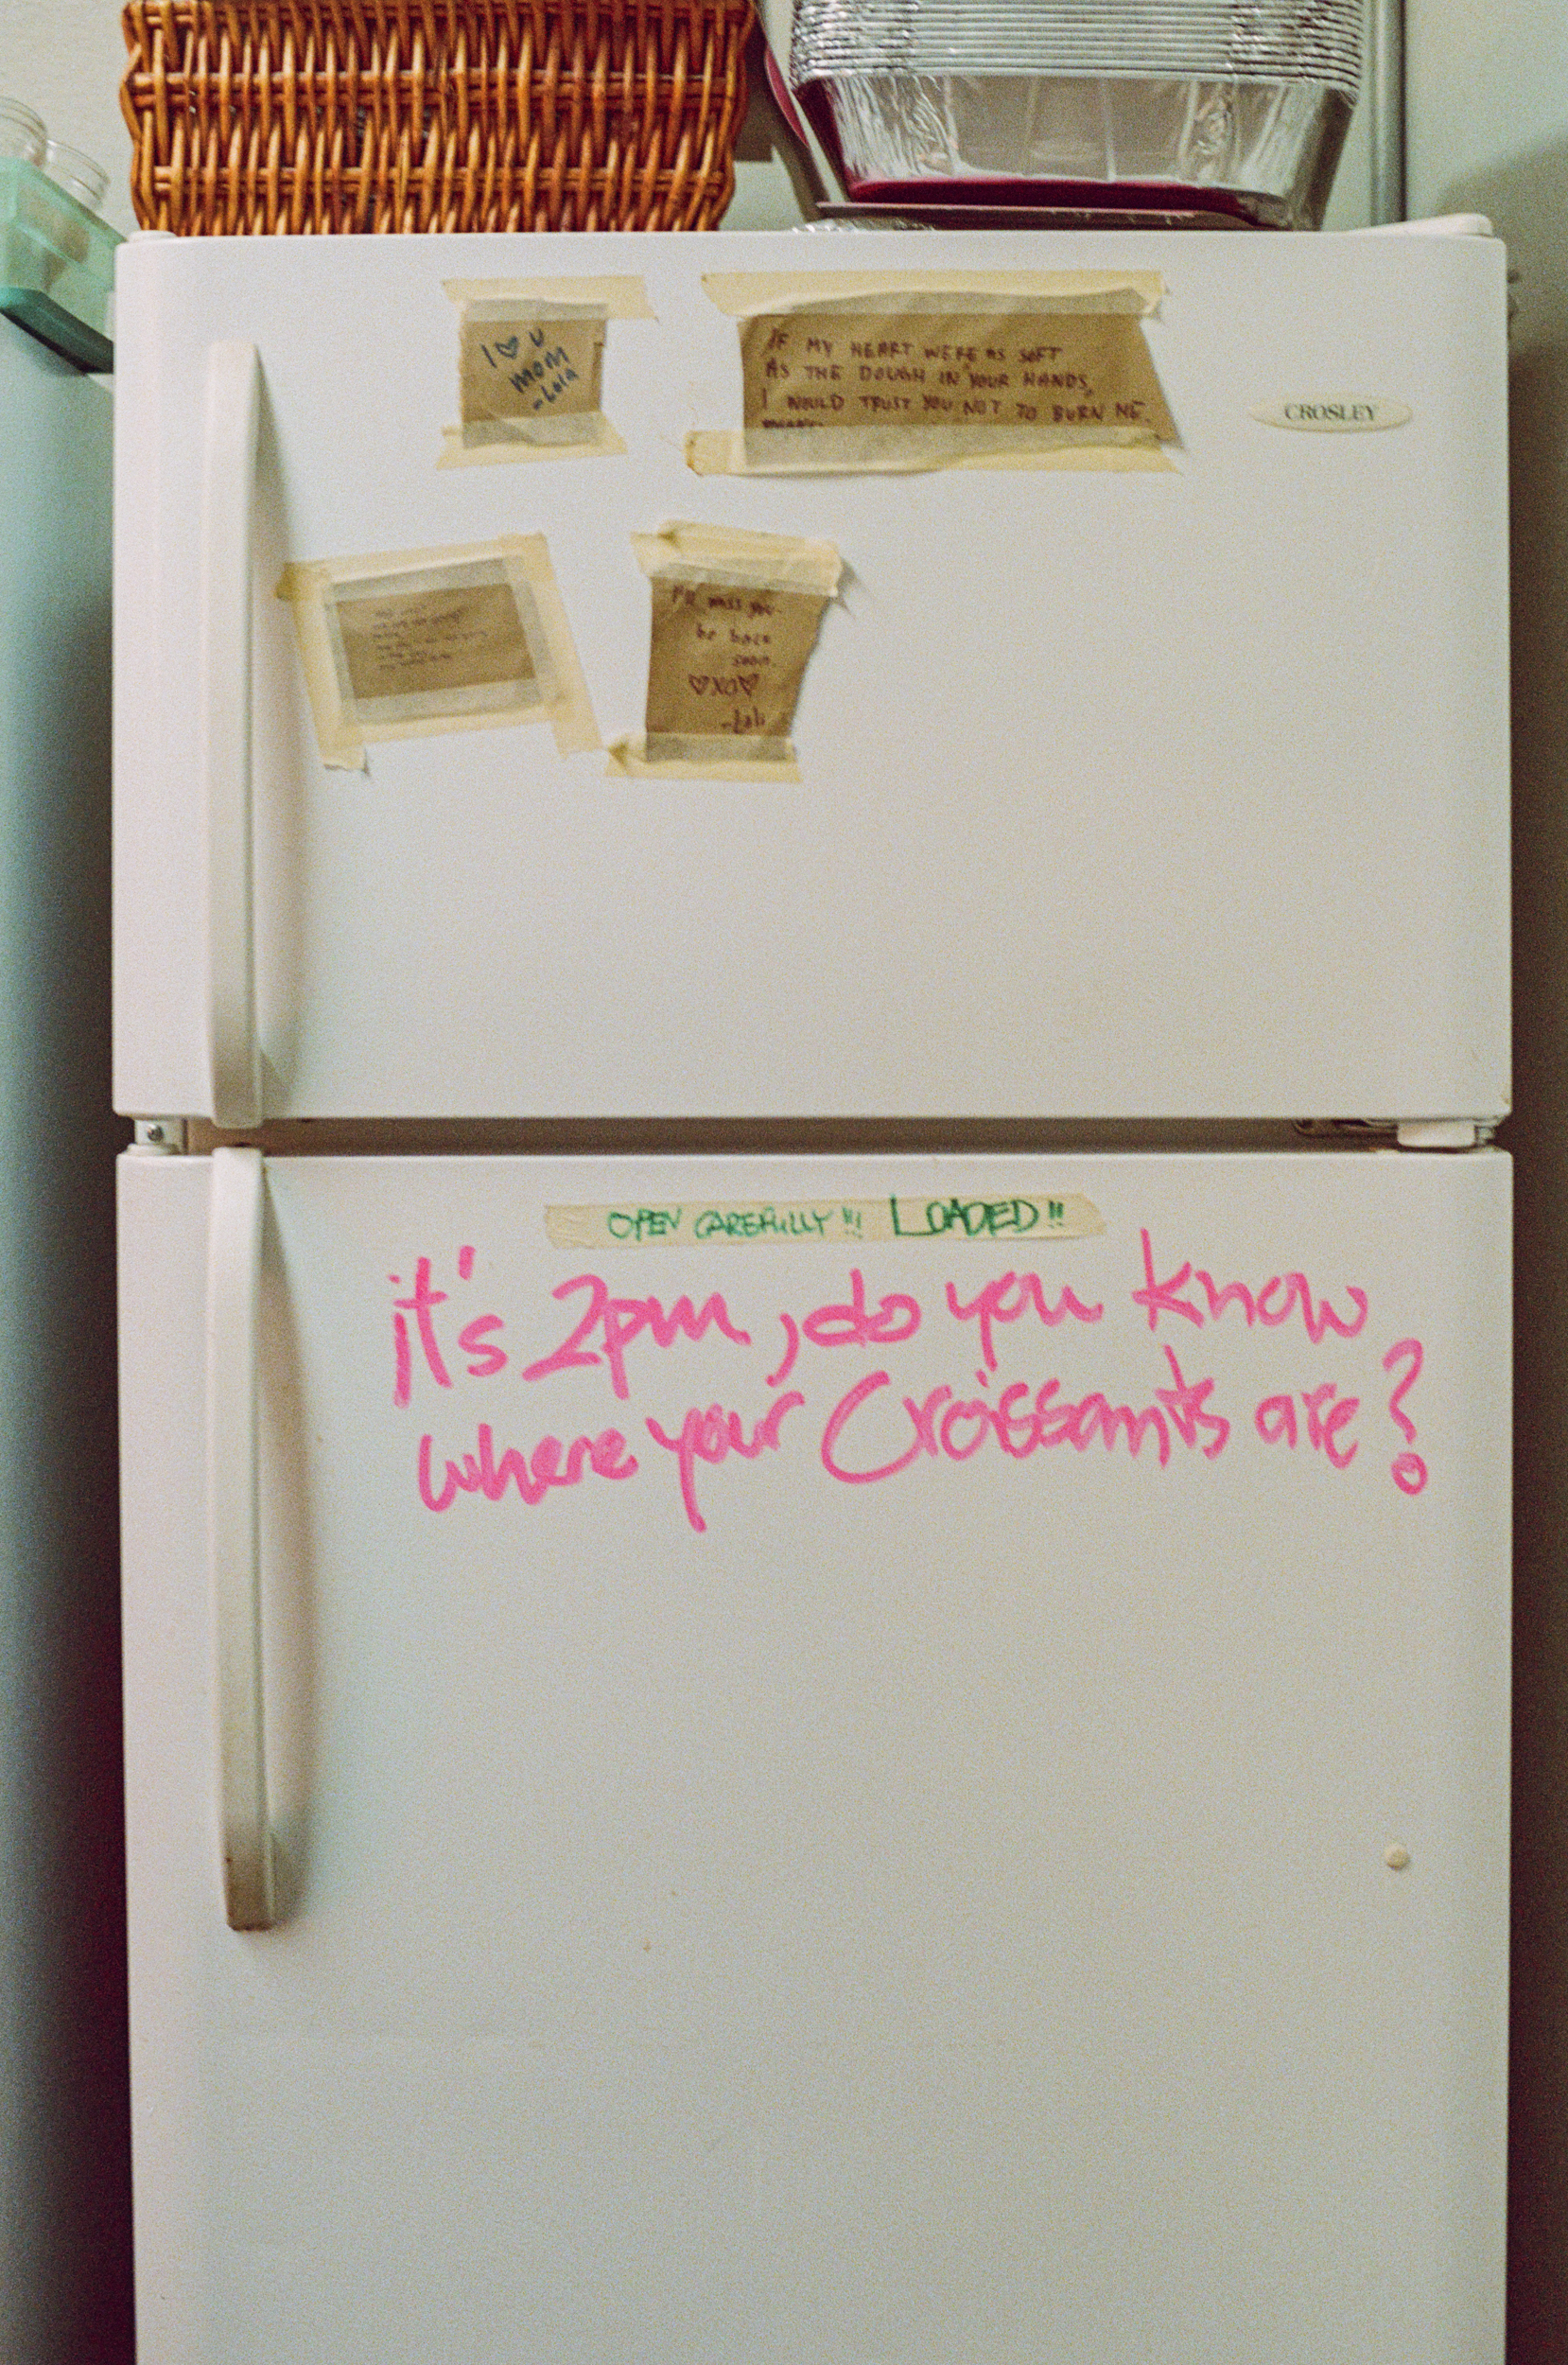 I ♡ U
MOM
-Lola
IF MY HEART WERE AS SOFT
AS THE DOUGH IN YOUR HANDS,
I WOULD TRUST YOU NOT TO BURN ME.
CROSLEY
I'll miss you.
be back
soon.
♡XO♡
OPEN CAREFULLY!!! LOADED!!
it's 2pm, do you know
where your Croissants are?